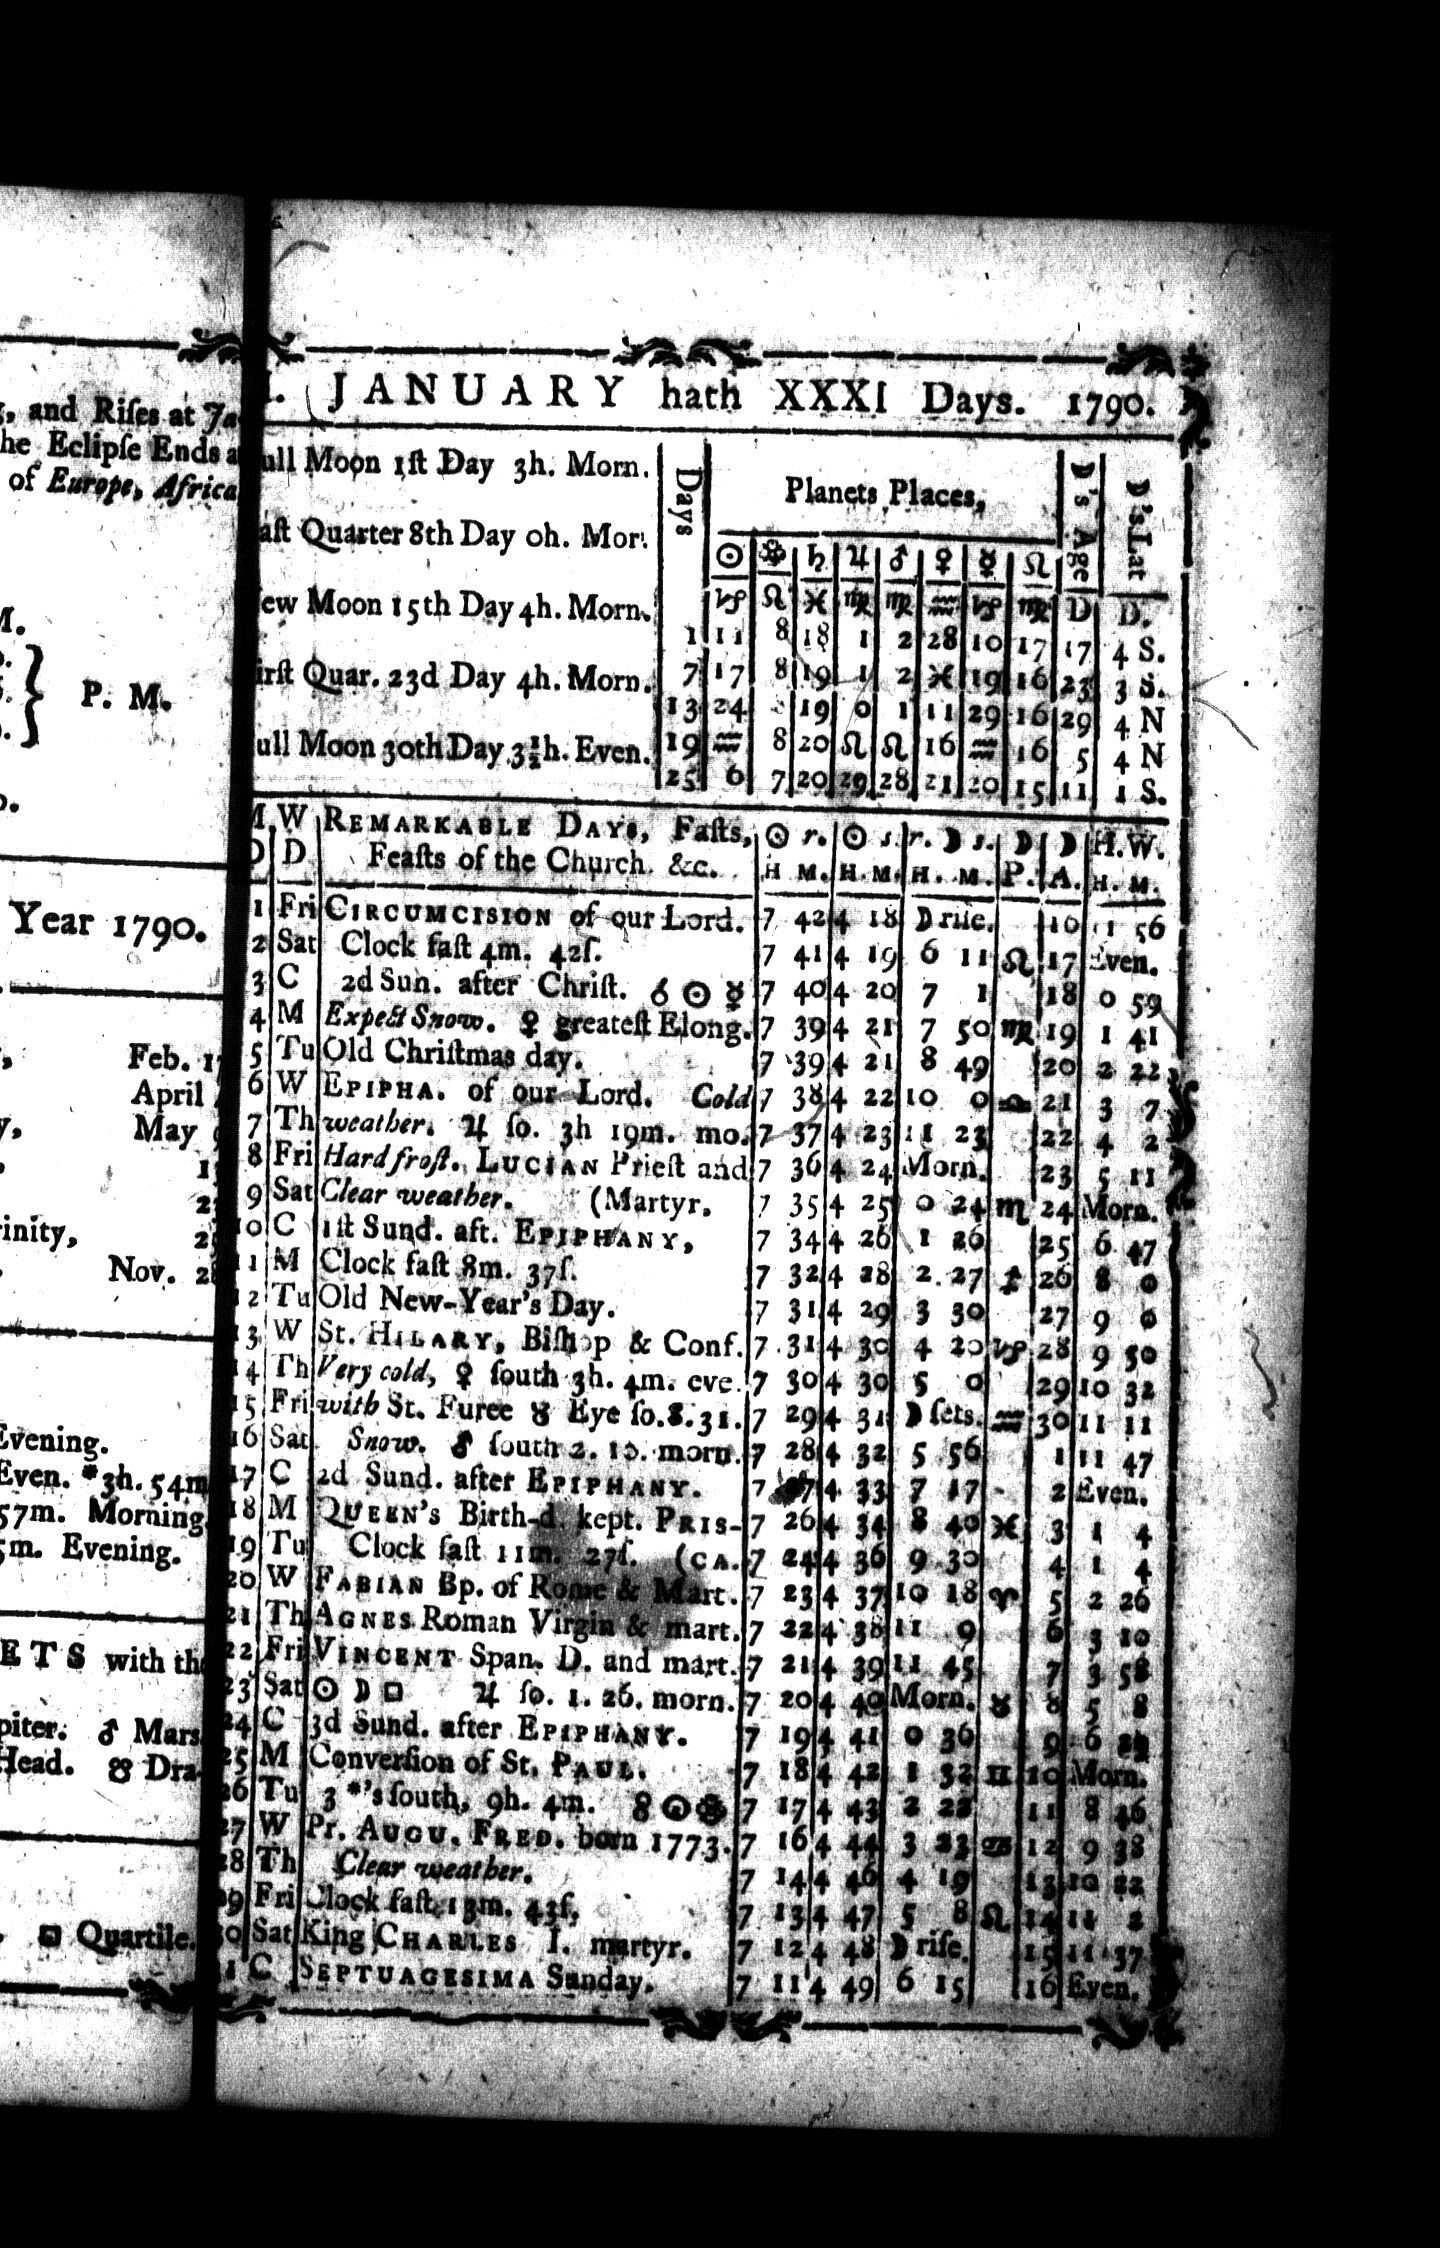 g, and Riſes at Ja
he Eclipſe Ends a
of Europe, Africa
M.
P. M.
Year 1790.
Feb. 17
April
May 9
rinity,
Nov. 28
Evening.
Even. *3h. 54m
57m. Morning.
5m. Evening.
ETS with the
piter. ♂ Mars
Head. ☋ Dra-
□ Quartile.
I. JANUARY hath XXXI Days. 1790.
ull Moon 1ſt Day 3h. Morn.
aſt Quarter 8th Day 0h. Mor.
ew Moon 15th Day 4h. Morn.
irſt Quar. 23d Day 4h. Morn.
ull Moon 30th Day 3½h. Even.
Days Planets Places, ☽'s Age ☽'s Lat
☉ ♄ ♃ ♂ ♀ ☿ ☊
♑ ♌ ♓ ♍ ♍ ♒ ♑ ♍ D D.
1 11 8 18 1 2 28 10 17 17 4 S.
7 17 8 19 1 2 ♓ 19 16 23 3 S.
13 24 19 0 1 11 29 16 29 4 N
19 ♒ 8 20 ♌ ♌ 16 ♒ 16 5 4 N
25 6 7 20 29 28 21 20 15 11 1 S.
M W REMARKABLE DAYS, Faſts, ☉ r. ☉ s. r. ☽ s. ☽ ☽ H.W.
D D Feaſts of the Church. &c. H M. H. M. H. M. P. A. H. M.
1 Fri CIRCUMCISION of our Lord. 7 42 4 18 ☽ riſe. 16 1 56
2 Sat Clock faſt 4m. 42ſ. 7 41 4 19 6 11 ♌ 17 Even.
3 C 2d Sun. after Chriſt. ☌ ☉ ☿ 7 40 4 20 7 1 18 0 59
4 M Expect Snow. ♀ greateſt Elong. 7 39 4 21 7 50 ♍ 19 1 41
5 Tu Old Chriſtmas day. 7 39 4 21 8 49 20 2 22
6 W EPIPHA. of our Lord. Cold 7 38 4 22 10 0 ♎ 21 3 7
7 Th weather. ♃ ſo. 3h 19m. mo. 7 37 4 23 11 23 22 4 2
8 Fri Hard froſt. LUCIAN Prieſt and 7 36 4 24 Morn. 23 5 11
9 Sat Clear weather. (Martyr. 7 35 4 25 0 24 ♏ 24 Morn.
10 C 1ſt Sund. aft. EPIPHANY, 7 34 4 26 1 26 25 6 47
11 M Clock faſt 8m. 37ſ. 7 32 4 28 2 27 ♐ 26 8 0
12 Tu Old New-Year's Day. 7 31 4 29 3 30 27 9 0
13 W St. HILARY, Biſhop & Conf. 7 31 4 30 4 20 ♑ 28 9 50
14 Th Very cold, ♀ ſouth 3h. 4m. eve. 7 30 4 30 5 0 29 10 32
15 Fri with St. Furee ♉ Eye ſo. 8. 31. 7 29 4 31 ☽ ſets. ♒ 30 11 11
16 Sat Snow. ♂ ſouth 2. morn. 7 28 4 32 5 56 1 11 47
17 C 2d Sund. after EPIPHANY. 7 4 33 7 17 2 Even.
18 M QUEEN's Birth-d. kept. PRIS- 7 26 4 34 8 40 ♓ 3 1 4
19 Tu Clock faſt 11m. 27ſ. (CA. 7 24 4 36 9 30 4 1 4
20 W FABIAN Bp. of Rome & Mart. 7 23 4 37 10 18 ♈ 5 2 26
21 Th AGNES Roman Virgin & mart. 7 22 4 38 11 9 6 3 10
22 Fri VINCENT Span. D. and mart. 7 21 4 39 11 45 7 3 58
23 Sat ☉ ☽ □ ♃ ſo. 1. 26. morn. 7 20 4 40 Morn. ♉ 8 5 8
24 C 3d Sund. after EPIPHANY. 7 19 4 41 0 36 9 6
25 M Converſion of St. PAUL. 7 18 4 42 1 32 ♊ 10 Morn.
26 Tu 3 *'s ſouth, 9h. 4m. ☍ ☉ 7 17 4 43 2 11 8 46
27 W Pr. AUGU. FRED. born 1773. 7 16 4 44 3 23 ♋ 12 9 38
28 Th Clear weather. 7 14 4 46 4 19 13 10 22
29 Fri Clock faſt 13m. 43ſ. 7 13 4 47 5 8 ♌ 14 11 2
30 Sat King CHARLES I. martyr. 7 12 4 48 ☽ riſe. 15 11 37
31 C SEPTUAGESIMA Sunday. 7 11 4 49 6 15 16 Even.